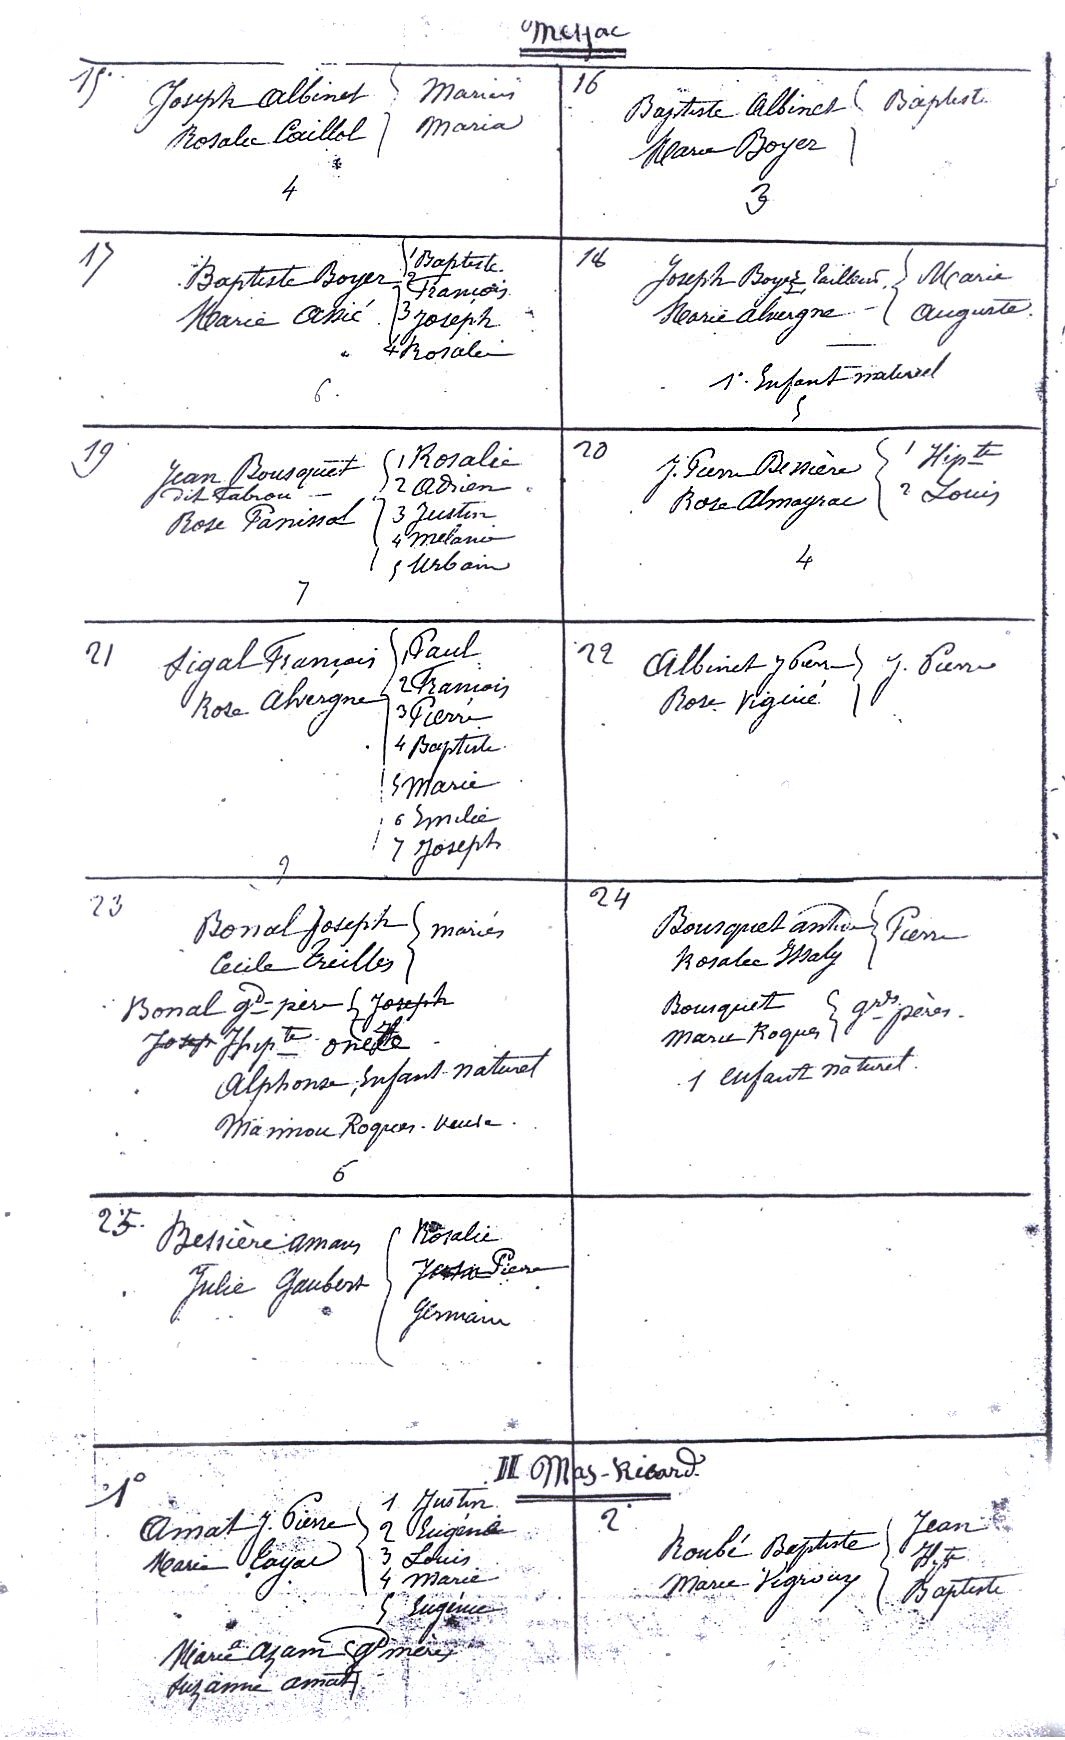 Mejjac
15° Joseph Albinet { Marius
Rosalie Caillol Maria
4
16 Baptiste Albinet { Baptiste
Marie Boyer
3
17 Baptiste Boyer { 1 Baptiste
2 François
Marie Assié 3 Joseph
4 Rosalie
6.
18 Joseph Boyer tailleur { Marie
Marie Alvergne - Auguste
1° Enfant naturel
5
19 Jean Bousquet { 1 Rosalie
dit Fabrou - 2 Adrien
Rose Panissol 3 Justin
4 Melanie
5 Urbain
7
20 J. Pierre Bessière { 1 Hipte
Rose Almayrac 2 Louis
4
21 Sigal François { 1 Paul
Rose Alvergne 2 François
3 Pierre
4 Baptiste
5 Marie
6 Emilie
7 Joseph
9
22 Albinet J Pierre } J. Pierre
Rose Viguié
23 Bonal Joseph { mariés
Cecile Treilles
Bonal gd-père { Joseph
Joseph Hipte
Alphonse, Enfant naturel
Marinou Roques - veuve.
6
24 Bousquet { Pierre
Rosalie Issaly
Bousquet { grds pères.
Marie Roques
1 enfant naturel.
25. Bessière Amans { Rosalie
Julie Gaubert Pierre
Germain
II Mas-Ricard
1° 1 Justin
Amat J. Pierre 2 Eugénie
Marie Cayac 3 Louis
4 Marie
5 Eugénie
Marie Azam gd mères
Suzanne Amat
2° Jean
Roubé Baptiste { Hte
Marie Vigroux Baptiste